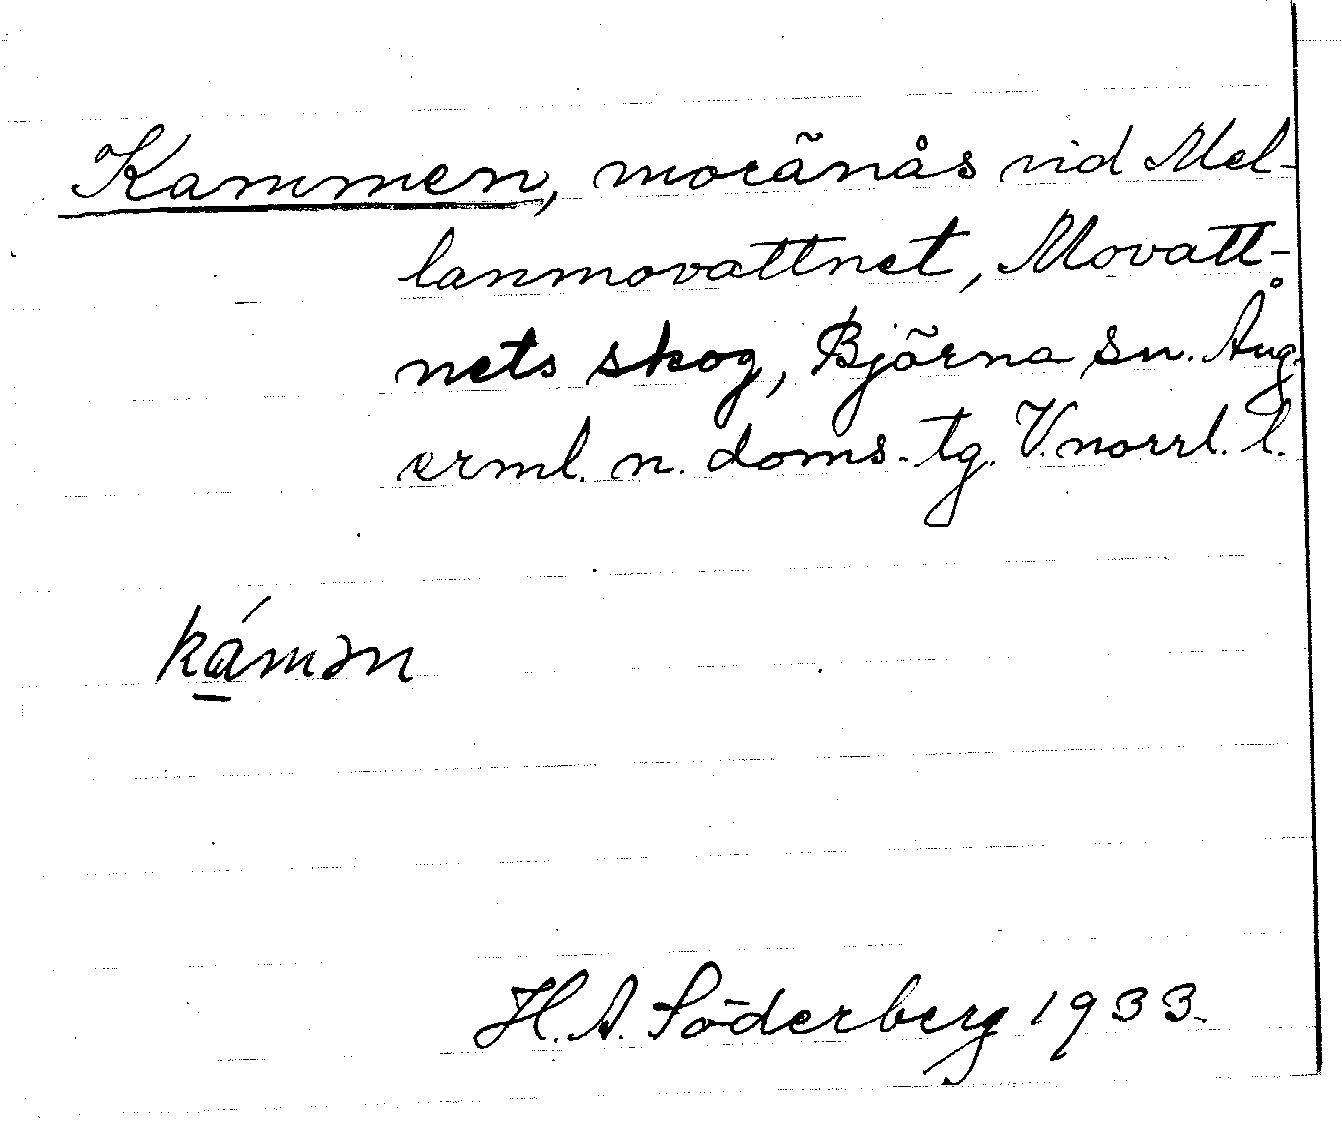 Kammen, moränås vid Mel-
lanmovattnet, Movatt-
nets skog, Björna sn. Ång-
erml. n. doms. tg. V.norrl. l.
ká̱mən
H. A. Söderberg 1933.